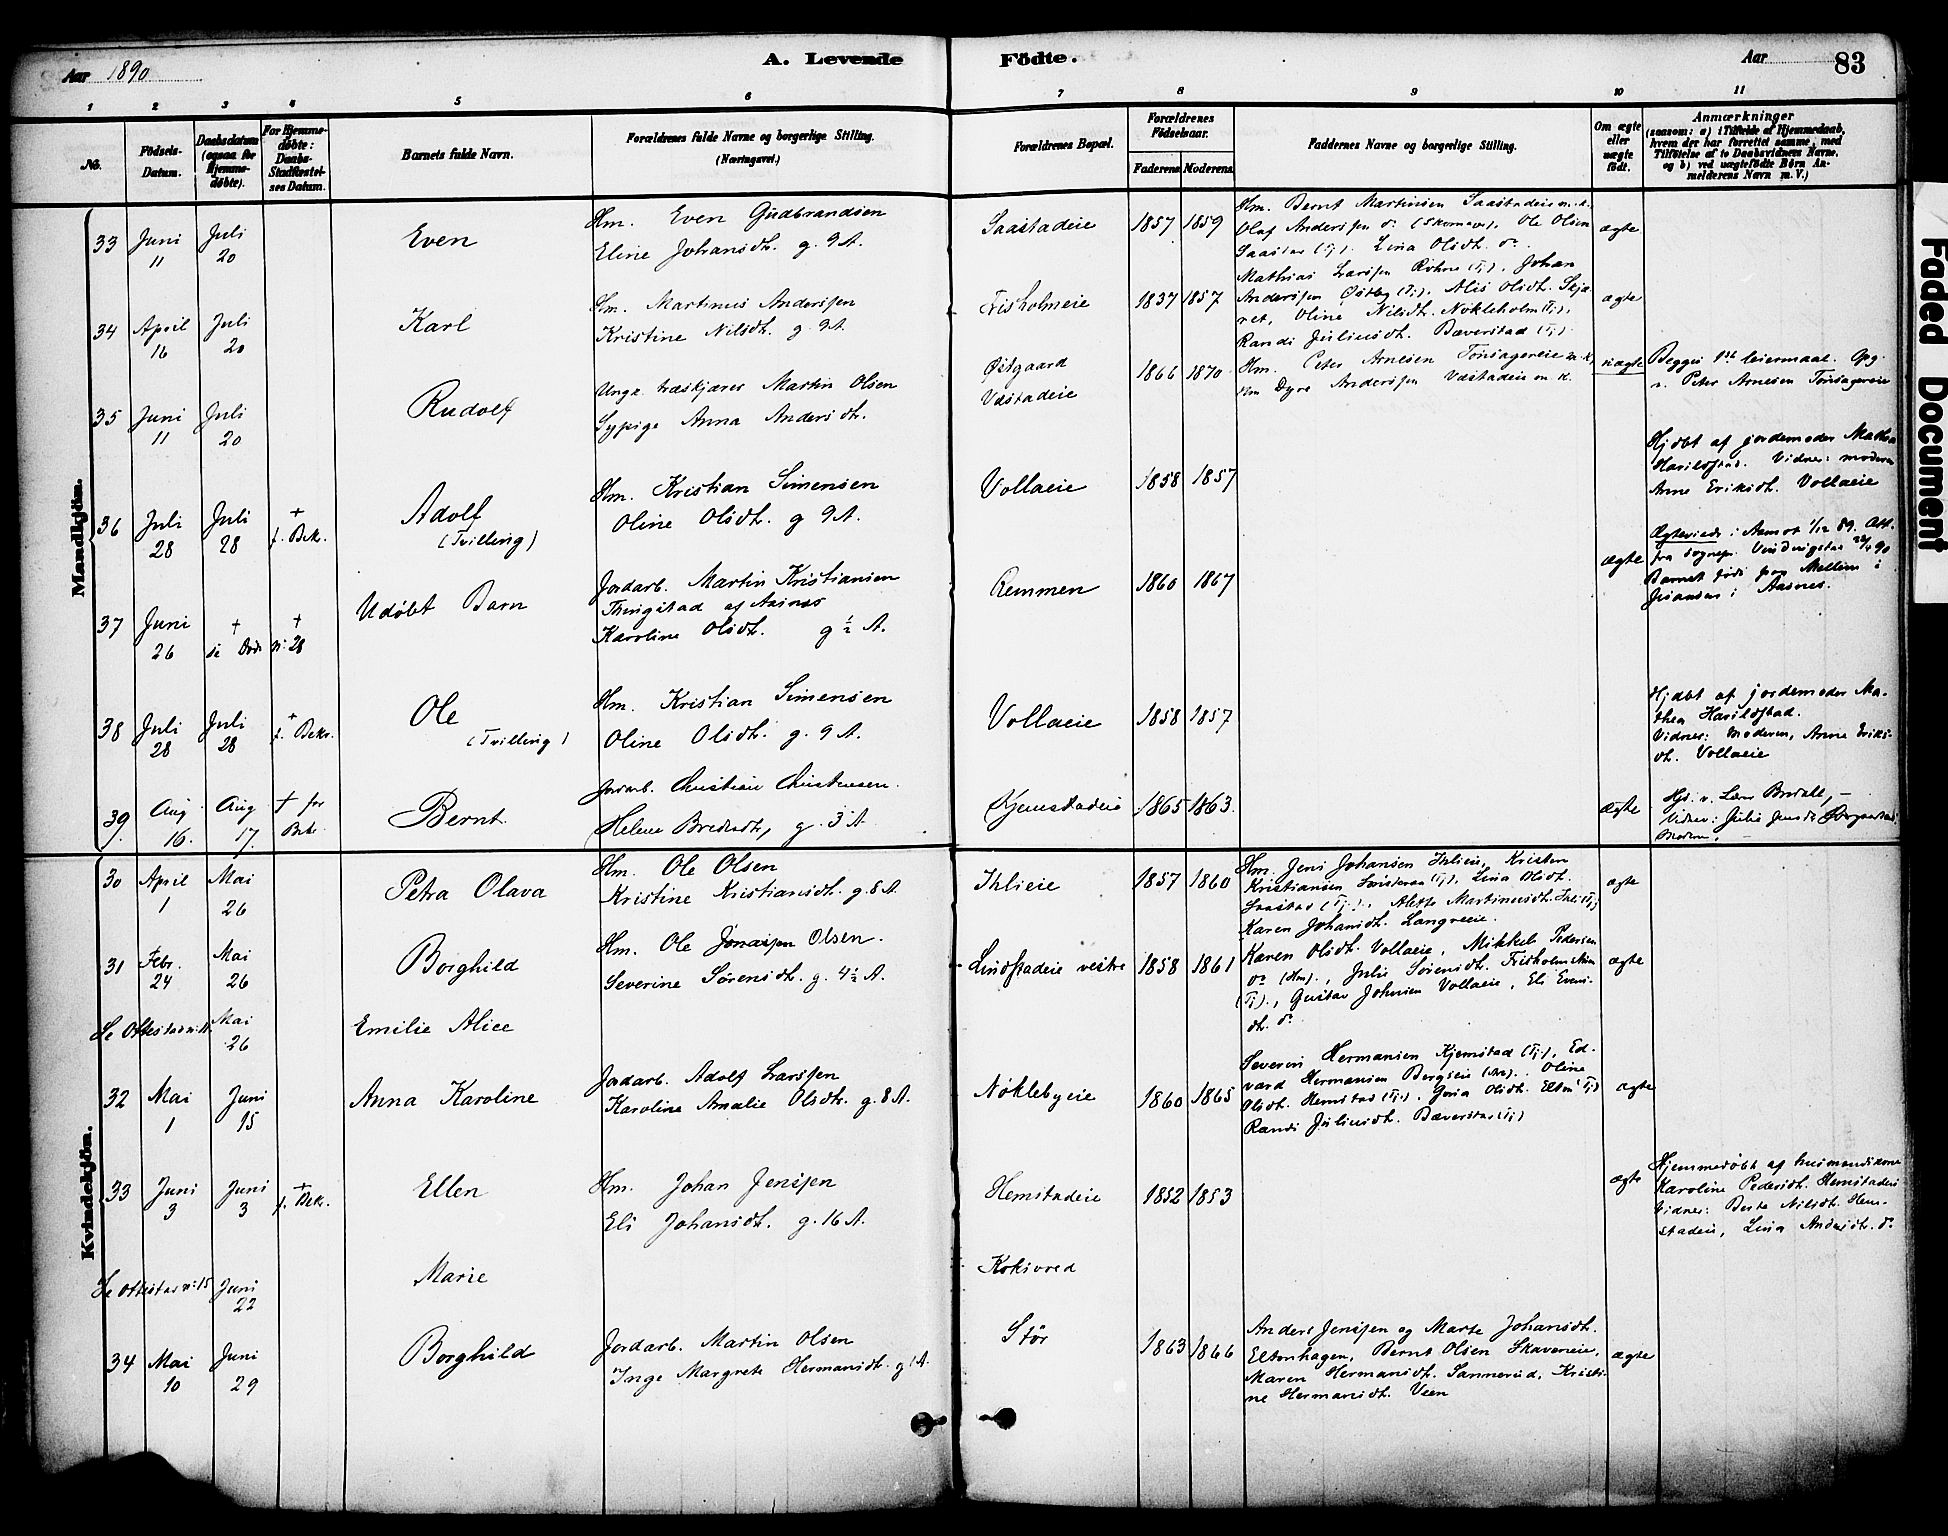 Aar 1890
A. Levende Födte.
Aar
83
1 2 3 4 5 6 7 8 9 10 11
No.
Födsels-Datum.
Daabsdatum (ogsaa for Hjemme-döbte).
For Hjemme-döbte: Daabs-Stadfæstel-ses Datum.
Barnets fulde Navn.
Forældrenes fulde Navne og borgerlige Stilling. (Næringsvei.)
Forældrenes Bopæl.
Forældrenes Födselsaar.
Faderens Moderens
Faddernes Navne og borgerlige Stilling.
Om ægte eller uægte födt.
Anmærkninger
(saasom: a) i Tilfælde af Hjemmedaab, hvem der har forrettet samme, med Tilföielse af to Daabsvidners Navne, og b) ved uægtefödte Börn An-melderens Navn m. V.)
Mandkjön.
33 Juni 11 Juli 20 Even
Hm. Even Gudbrandsen
Eline Johansdt. g. 9 A.
Saastadeie 1857 1859
Hm. Bernt Martinsen Saastadeie m. k.
Olaf Anderssen do (Skomar), Ole Olsen
Saastad (Tj). Lina Olsdt. do
ægte
34 April 16 Juli 20 Karl
Hm. Martinus Anderssen
Kristine Nilsdt. g. 9 A.
Fisholmeie 1837 1857
Mathias Larssen Röhne (Tj), Johan
Anderssen Østby (Tj), Alis Olsdt. Skjæ-
ret, Oline Nilsdt. Nökleholm (Tj),
Randi Juliusdt. Bæverstad (Tj)
ægte
35 Juni 11 Juli 20 Rudolf
Ungk. træskjærer Martin Olsen
Sypige Anna Andersdt.
Østgaard
Væstadeie 1866 1870
Hm. Peter Arnesen Tonsagereie m. k.
Hm Dyre Anderssen Væstadeie m k.
uægte
Begges 1ste leiermaal. Opg.
v. Peter Arnesen Tonsagereie
36 Juli 28 Juli 28 + f. Bek. Adolf
(Tvilling)
Hm. Kristian Simensen
Oline Olsdt. g 9 A.
Vollaeie 1858 1857
Hjdöbt af jordemoder Mathea
Harildstad. Vidner: moderen
Anne Eriksdt. Vollaeie
37 Juni 26 + se Døde + n: 28 Udöbt Barn
Jordarb. Martin Kristiansen
Thingstad af Aasnes
Karoline Olsdt. g ½ A.
Remmen 1860 1867
ægte
Ægteviede i Aamot 1/12 89. Att.
fra sognepr. Vindvigstad 24/4 90
Barnet födt paa Mellem i
Aasnes.
38 Juli 28 Juli 28 + f. Bekr. Ole
(Tvilling)
Hm. Kristian Simensen
Oline Olsdt. g. 9 A.
Vollaeie 1858 1857
Hjdöbt af jordemoder Ma-
thea Harildstad.
Vidner: Moderen, Anne Eriks-
dt. Vollaeie
39 Aug 16. Aug 17. + før Bek. Bernt
Jordarb. Christian Christensen.
Helene Bredesdt, g. 3 A
Kjemstadeie 1865 1863.
ægte
Hjd. v. Lars Bredalt, –
Vidner: Julie Jensdt
Moderen. –
Kvindekjön.
30 April 1 Mai 26 Petra Olava
Hm. Ole Olsen
Kristine Kristiansdt. g. 8 A.
Ihlieie 1857 1860
Hm. Jens Johansen Ihlieie, Kristen
Kristiansen (Tj), Lina Olsdt.
Saastad (Tj), Alette Martinusdt. Ihle (Tj)
Karen Johansdt. Langreeie.
ægte
31 Febr. 24 Mai 26 Borghild
Hm. Ole Jonassen Olsen.
Severine Sörensdt. g. 4½ A.
Lindstadeie vestre 1858 1861
Karen Olsdt. Vollaeie, Mikkel Pedersen
do (Hm), Julie Sörensdt. Frisholm
(Tj), Gustav Johnsen Vollaeie, Eli Evens-
dt. do
ægte
Se Ottestad n: 11. Mai 26 Emilie Alice
32 Mai 1 Juni 15 Anna Karoline
Jordarb. Adolf Larssen
Karoline Amalie Olsdt. g. 8 A.
Nöklebyeie 1860 1865
Severin Hermansen Kjemstad (Tj), Ed-
vard Hermansen Bergseie, Oline
Olsdt. Hemstad (Tj), Olsdt. (Tj)
Randi Juliusdt. Bæverstad (Tj)
ægte
33 Juni 3 Juni 3 + f. Bek. Ellen
Hm. Johan Jenssen
Eli Johansdt. g. 16 A.
Hemstadeie 1852 1853
ægte
Hjemmedöbt af husmandskone
Karoline Pedersdt. Hemstadeie
Vidner: Berte Nilsdt. Hem-
stadeie, Lina Andersdt. do
Se Ottestad n: 15 Juni 22 Marie Koksvred
34 Mai 10 Juni 29 Borghild
Jordarb. Martin Olsen
Inge Margrete Hermansdt. g 1 A.
Stör 1863 1866
Anders Jenssen og Marte Johansdt.
Eltonhagen, Bernt Olsen Skavereie,
Maren Hermansdt. Sannerud, Kristi-
ne Hermansdt. Veen
ægte
Faded Document